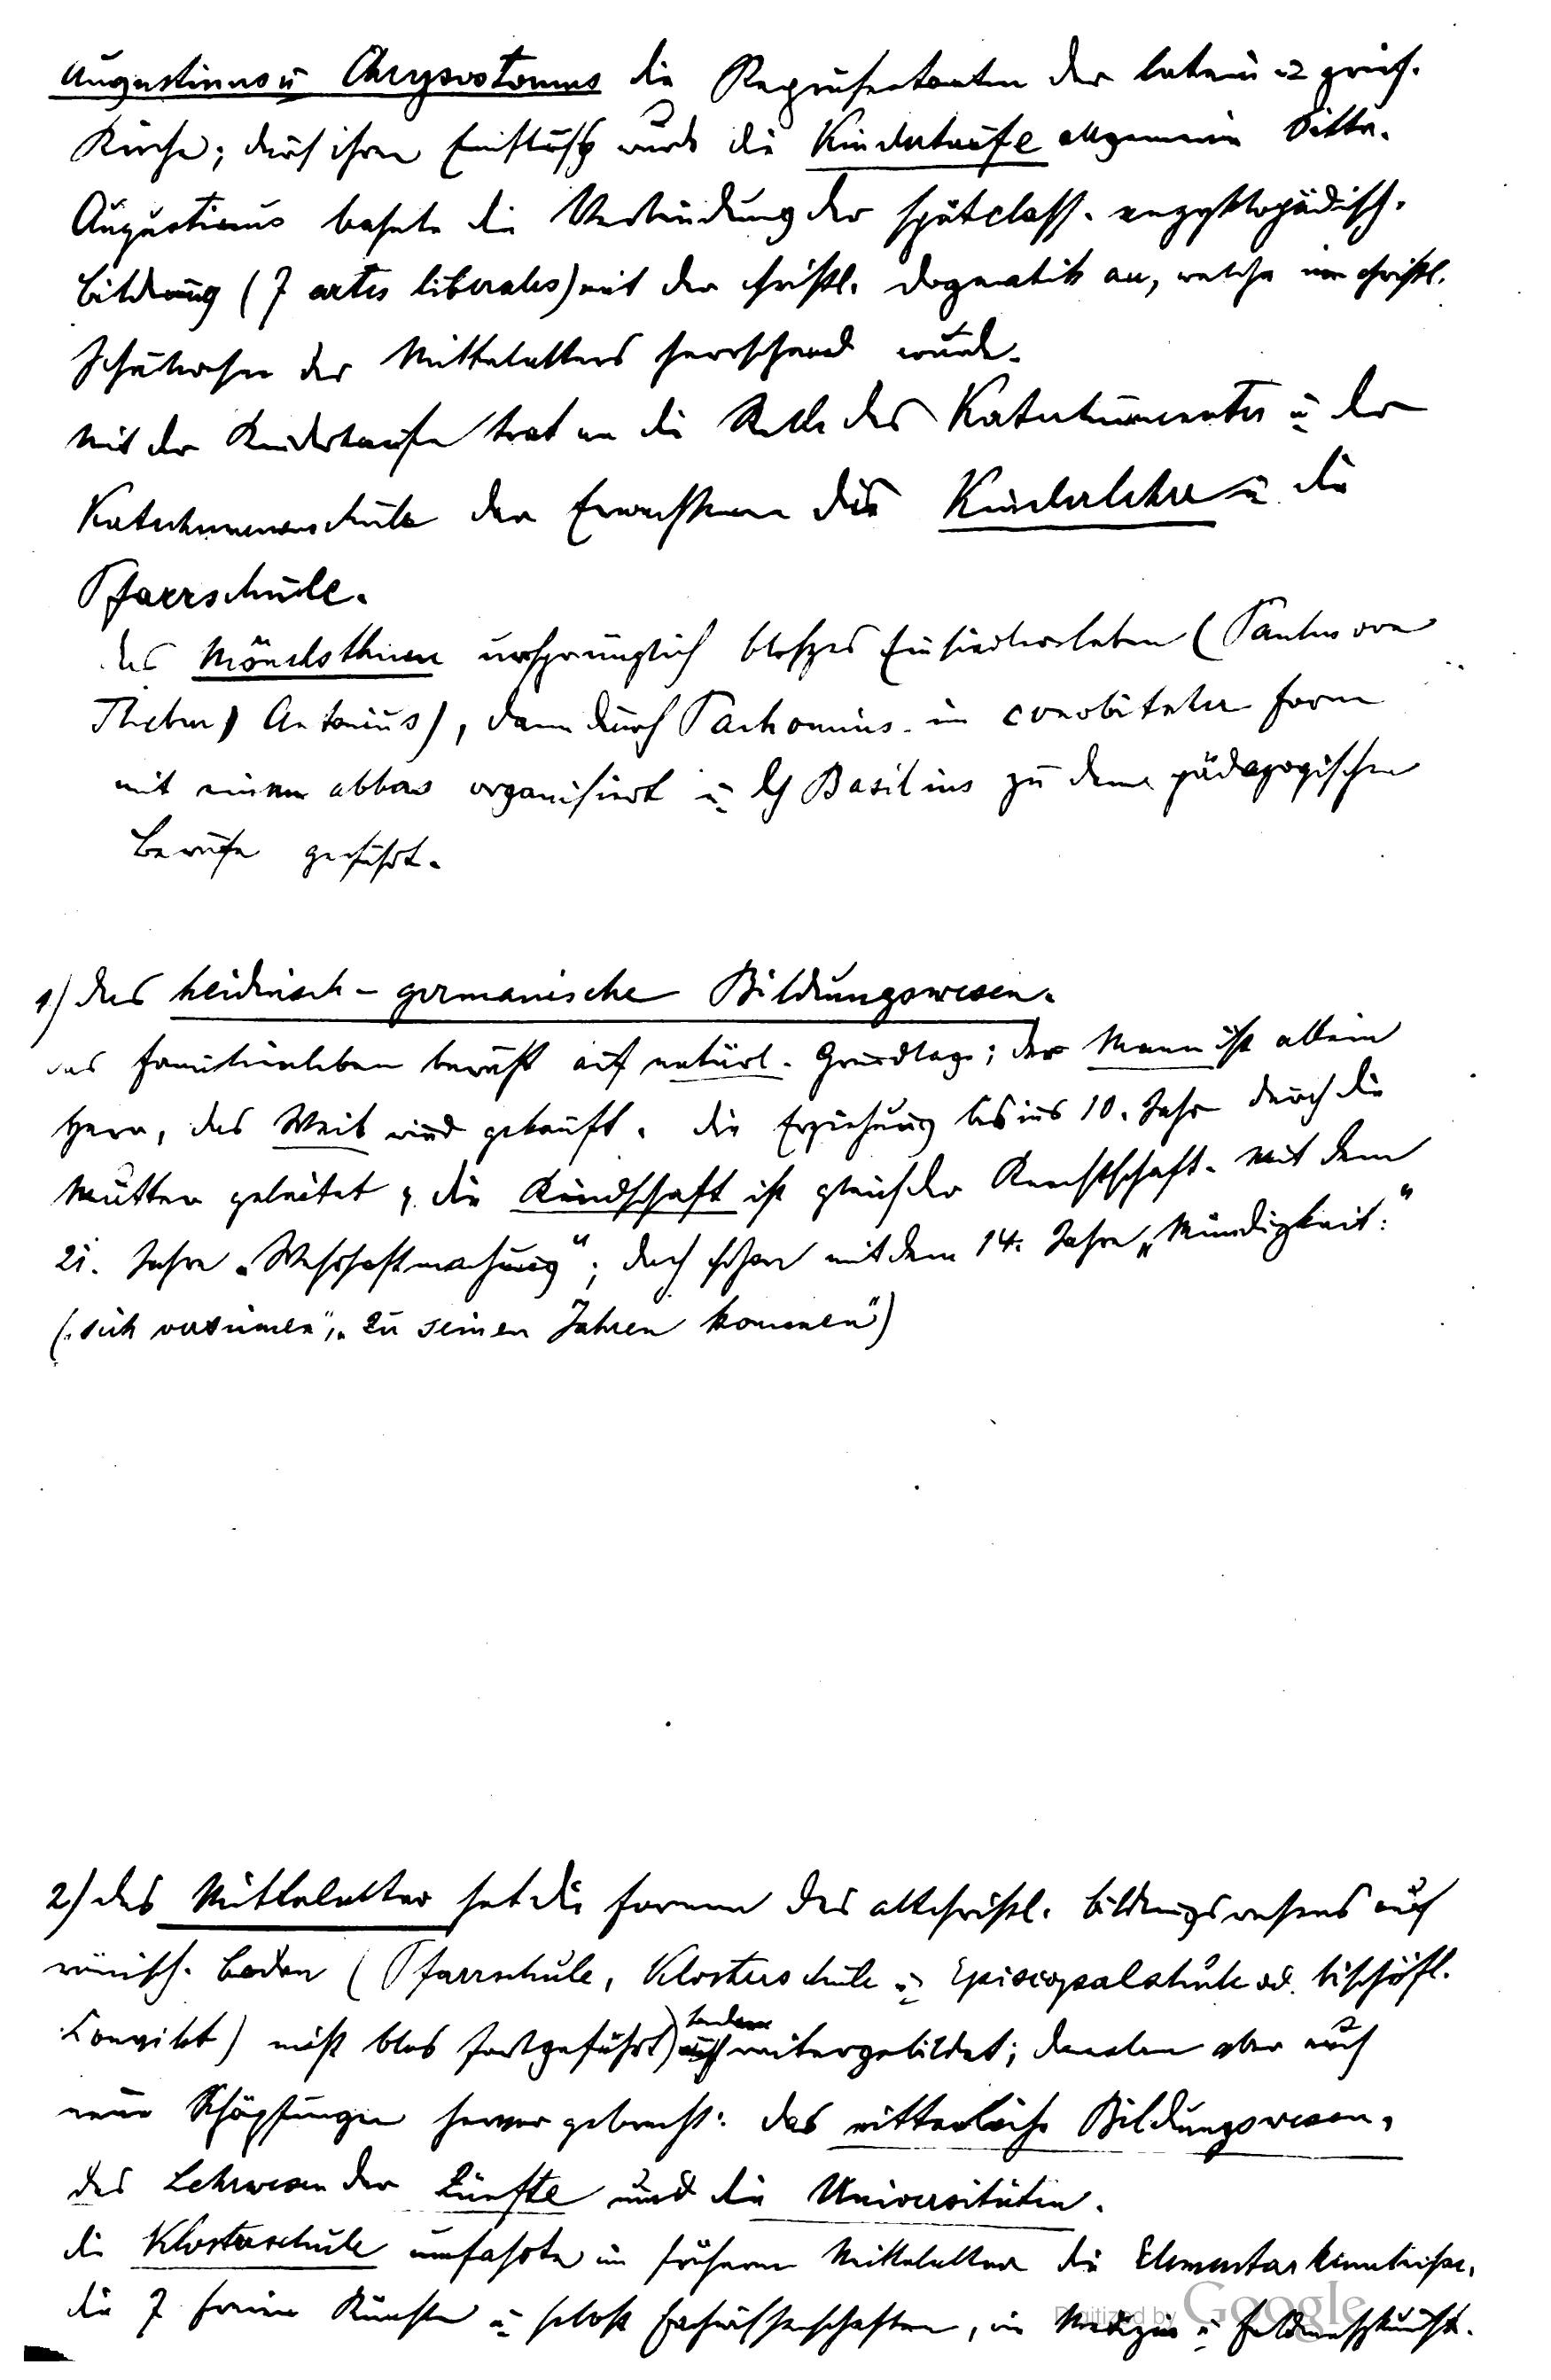 Augustinus u Chrysostomus die Repräsentanten der latein u griech.
Kirche; durch ihren Einfluß wurde die Kindertaufe allgemeine Sitte.
Augustinus bahnte die Verbindung der spätclass. enzyklopädisch.
Bildung (7 artes liberales) mit der christl. Dogmatik an, welche im christl.
Schulwesen des Mittelalters herrschend wurde.
Mit der Kindertaufe trat an die Stelle des Katechumenates u der
Katechumenenschule der Erwachsenen die Kinderlehre u die
Pfarrschule.
das Mönchsthum ursprünglich bloßes Einsiedlerleben (Paulus von
Theben, Antonius), dann durch Pachomius in coenobitischer Form
mit einem abbas organisiert u Basilius zu dem pädagogischen
Berufe geführt.
1) das heidnisch-germanische Bildungswesen.
das Familienleben beruht auf natürl. Grundlage; der Mann ist allein
Herr, das Weib wird gekauft. die Erziehung bis ins 10. Jahr durch die
Mutter geleitet, die Kindschaft ist gleich der Knechtschaft. Mit dem
21. Jahre „Wehrhaftmachung“; doch schon mit dem 14. Jahre „Mündigkeit.“
(„sich „zu seinen Jahren kommen“)
2) das Mittelalter hat die Formen des altchristl. Bildungswesens auf
römisch. Boden (Pfarrschule, Klosterschule u Episcopalschule od. bischöfl.
Convikt) nicht blos fortgeführt, sondern weitergebildet; daneben aber auch
neue Schöpfungen hervorgebracht: das ritterliche Bildungswesen,
das Lehrwesen der Zünfte und die Universitäten.
die Klosterschule umfaßte im frühern Mittelalter die Elementarkenntnisse,
die 7 freien Künste u selbst Fachwissenschaften, wie Medizin u Feldmeßkunst.
Digitized by Google